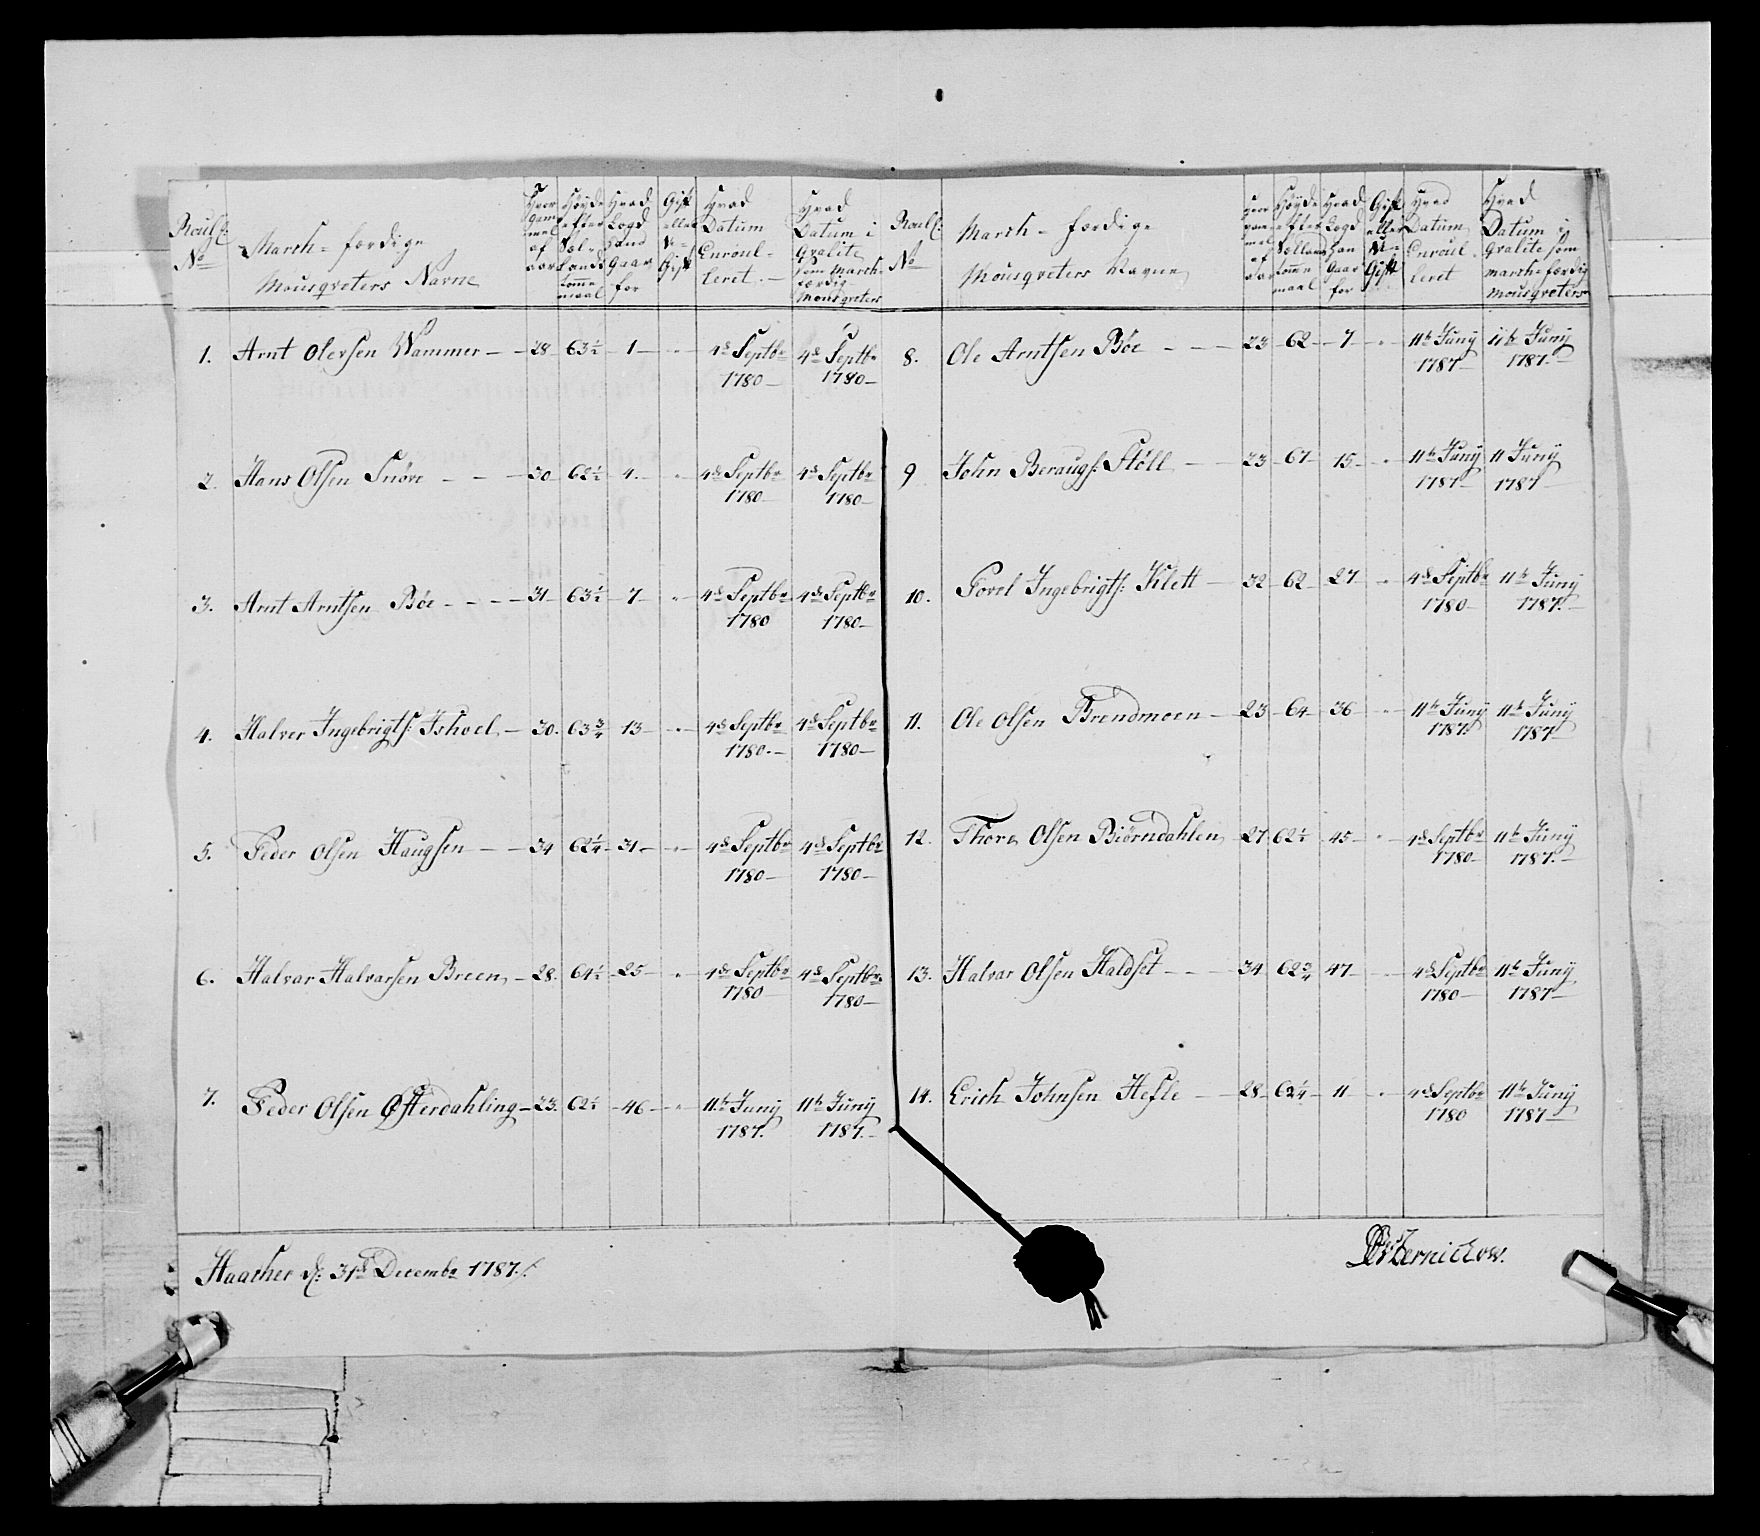 Roull: No
Marsh-færdige Mousqveters Navne
Hvor gammel af aar
Høyde efter Sællands tomme maal
Hvad Lægd Hand Gaar for
Gift eller U-Gift
Hvad Datum Enroulleret
Hvad Datum i Qvalite som Marsh-færdig Mousqveters
1. Arnt Olevsen Wammer – 28 – 63½ – 1 – 4de Septbr 1780 – 4de Septbr 1780 –
2. Hans Olsen Snöve – 30 – 62½ 4. – 4de Septbr 1780 – 4de Septbr 1780 –
3. Arnt Arntsen Böe – 31 – 63½ – 7 – 4de Septbr 1780 4de Septbr 1780 –
4. Halver Ingebrigts: Ishoel – 30. 63¾ 13 – 4de Septbr 1780. – 4de Septbr 1780 –
5. Peder Olsen Haugsen – 34 62¼ – 31 – 4de Septbr 1780 – 4de Septbr 1780 –
6. Halvar Halvarsen Breen – 28. 64½ – 25 – 4de Septbr 1780 – 4de Septbr 1780 –
7. Peder Olsen Østerdahling – 23. 62½ – 46 – 11te Juny 1787. 11te Juny 1787. –
Roull: No
Marsh-færdige Mousqveters Navne
Hvor gammel af aar
Høyde efter Sællands tomme maal
Hvad Lægd Han Gaar for
Gift eller U-Gift
Hvad Datum Enroulleret
Hvad Datum i Qvalite som marsh-færdig Mousqveters
8. Ole Arntsen Böe – 23 – 62 – 7 – 11te Juny 1787 – 11te Juny 1787. –
9 John Beraugs: Stöll – 23 – 67 15 – 11te Juny 1787 – 11 Juny 1787 –
10. Povel Ingebrigts: Klett – 32 – 62 – 27 – 4de Septbr 1780 – 11te Juny 1787. –
11. Ole Olsen Brendmoen – 23 – 64 – 36 – 11te Juny 1787. 11te Juny 1787 –
12. Thore Olsen Biörndahlen 27 62½ 45 – 4de Septbr 1780 – 11te Juny 1787. –
13. Halvar Olsen Haldset – 34 62¾ 47 – 4de Septbr 1780 – 11te Juny 1787 –
14. Erich Johnsen Hefle – 28 – 62¼ – 11 – 4de Septbr 1780 11te Juny 1787 –
d: 31de Decembr 1787./.